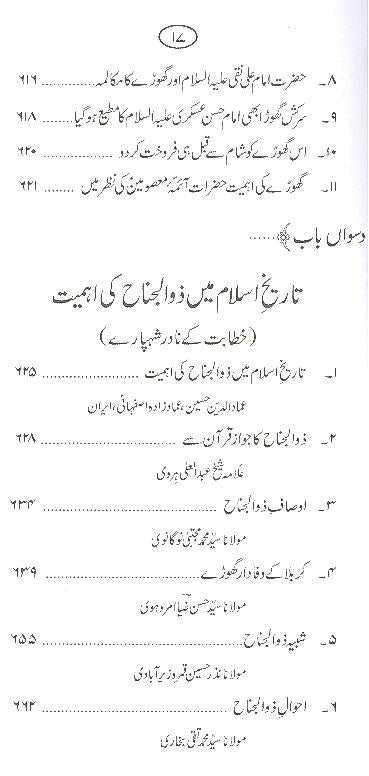 ۱۷
۸۔ حضرت امام علی نقی علیہ السلام اور گھوڑے کا مکالمہ .............. ۶۱۶
۹۔ سرکش گھوڑا بھی امام حسن عسکری علیہ السلام کا مطیع ہو گیا ...... ۶۱۸
۱۰۔ اس گھوڑے کو شام سے قبل ہی فروخت کر دو .................. ۶۲۰
۱۱۔ گھوڑے کی اہمیت حضرات آئمۂ معصومینؑ کی نظر میں ........ ۶۲۱
دسواں باب ﴾......
تاریخِ اسلام میں ذوالجناح کی اہمیت
(خطابت کے نادر شہپارے)
۱۔ تاریخِ اسلام میں ذوالجناح کی اہمیت ........................ ۶۲۵
عماد الدین حسین، عماد زادہ اصفہانی، ایران
۲۔ ذوالجناح کا جواز قرآن سے ............................ ۶۲۸
علامہ شیخ عبدالعلی ہروی
۳۔ اوصافِ ذوالجناح .................................. ۶۳۴
مولانا سیّد محمد مجتبیٰ نوگانوی
۴۔ کربلا کے وفادار گھوڑے ................................ ۶۳۹
مولانا سیّد حسن ضیاؔ امروہوی
۵۔ شبیہ ذوالجناح .................................. ۶۵۵
مولانا نذر حسین قمر وزیر آبادی
۶۔ احوالِ ذوالجناح .................................. ۶۶۲
مولانا سیّد محمد تقی بخاری